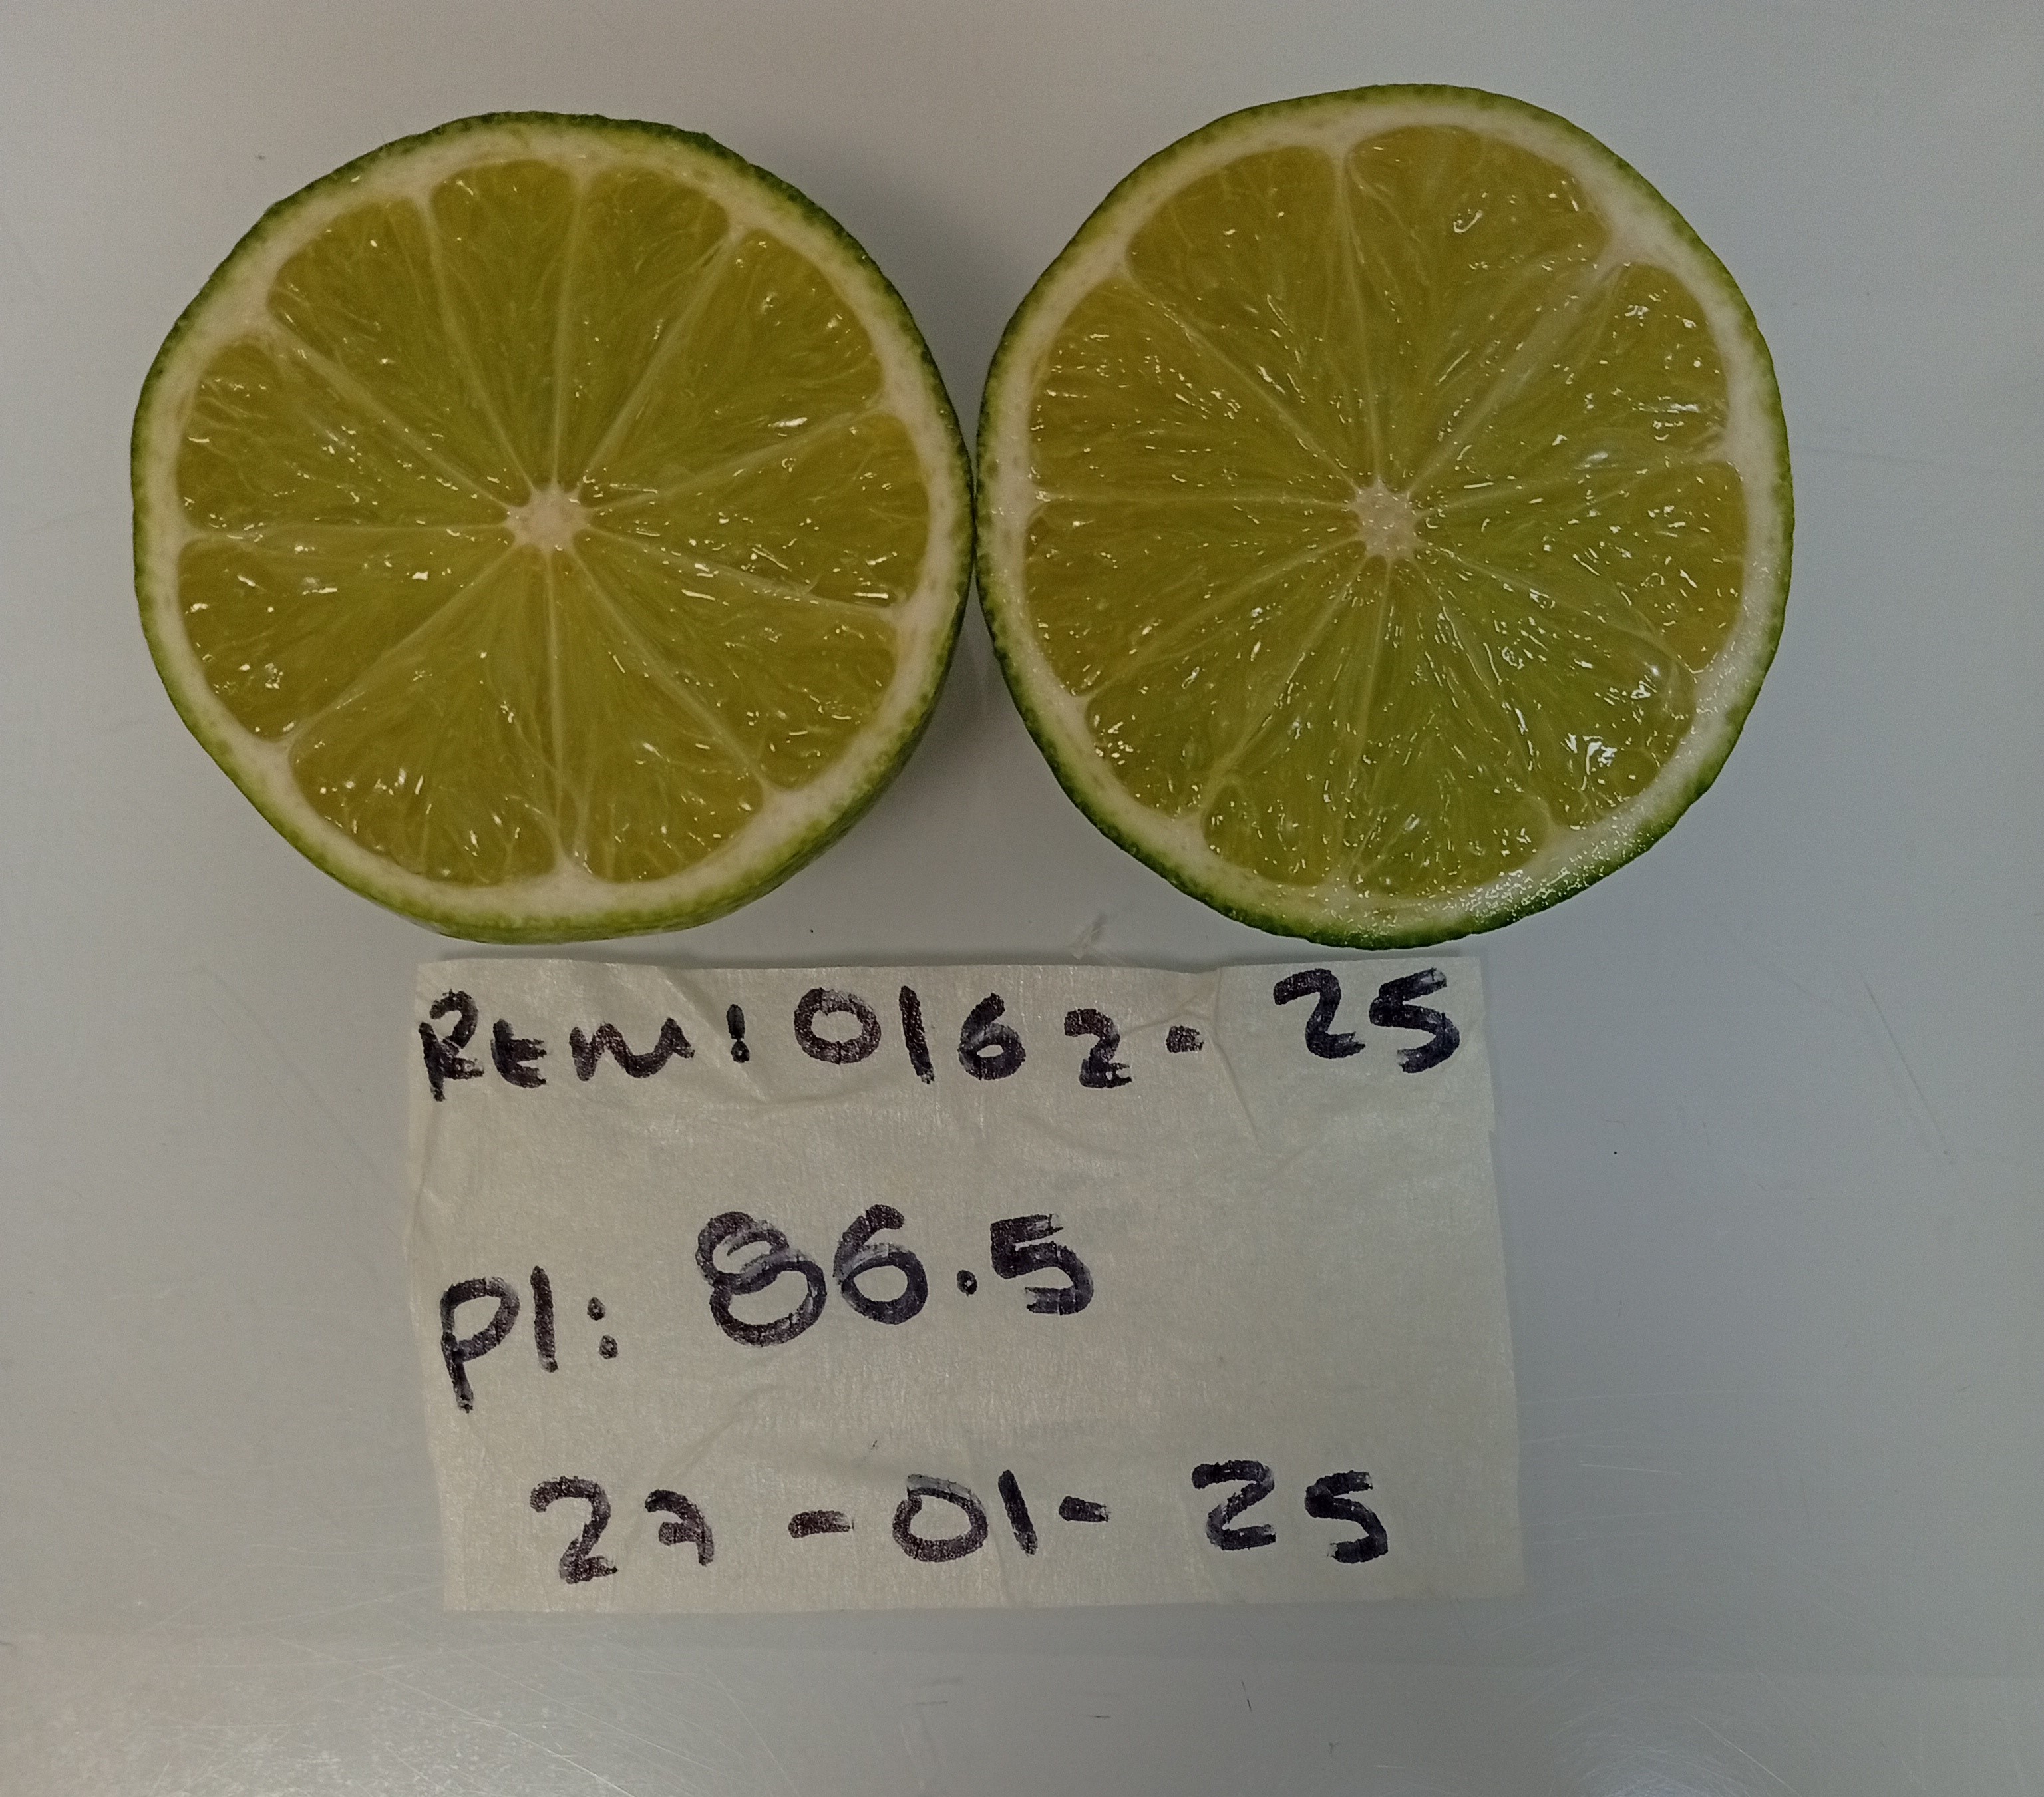 Rem: 0162-25
Pl: 86.5
27-01-25